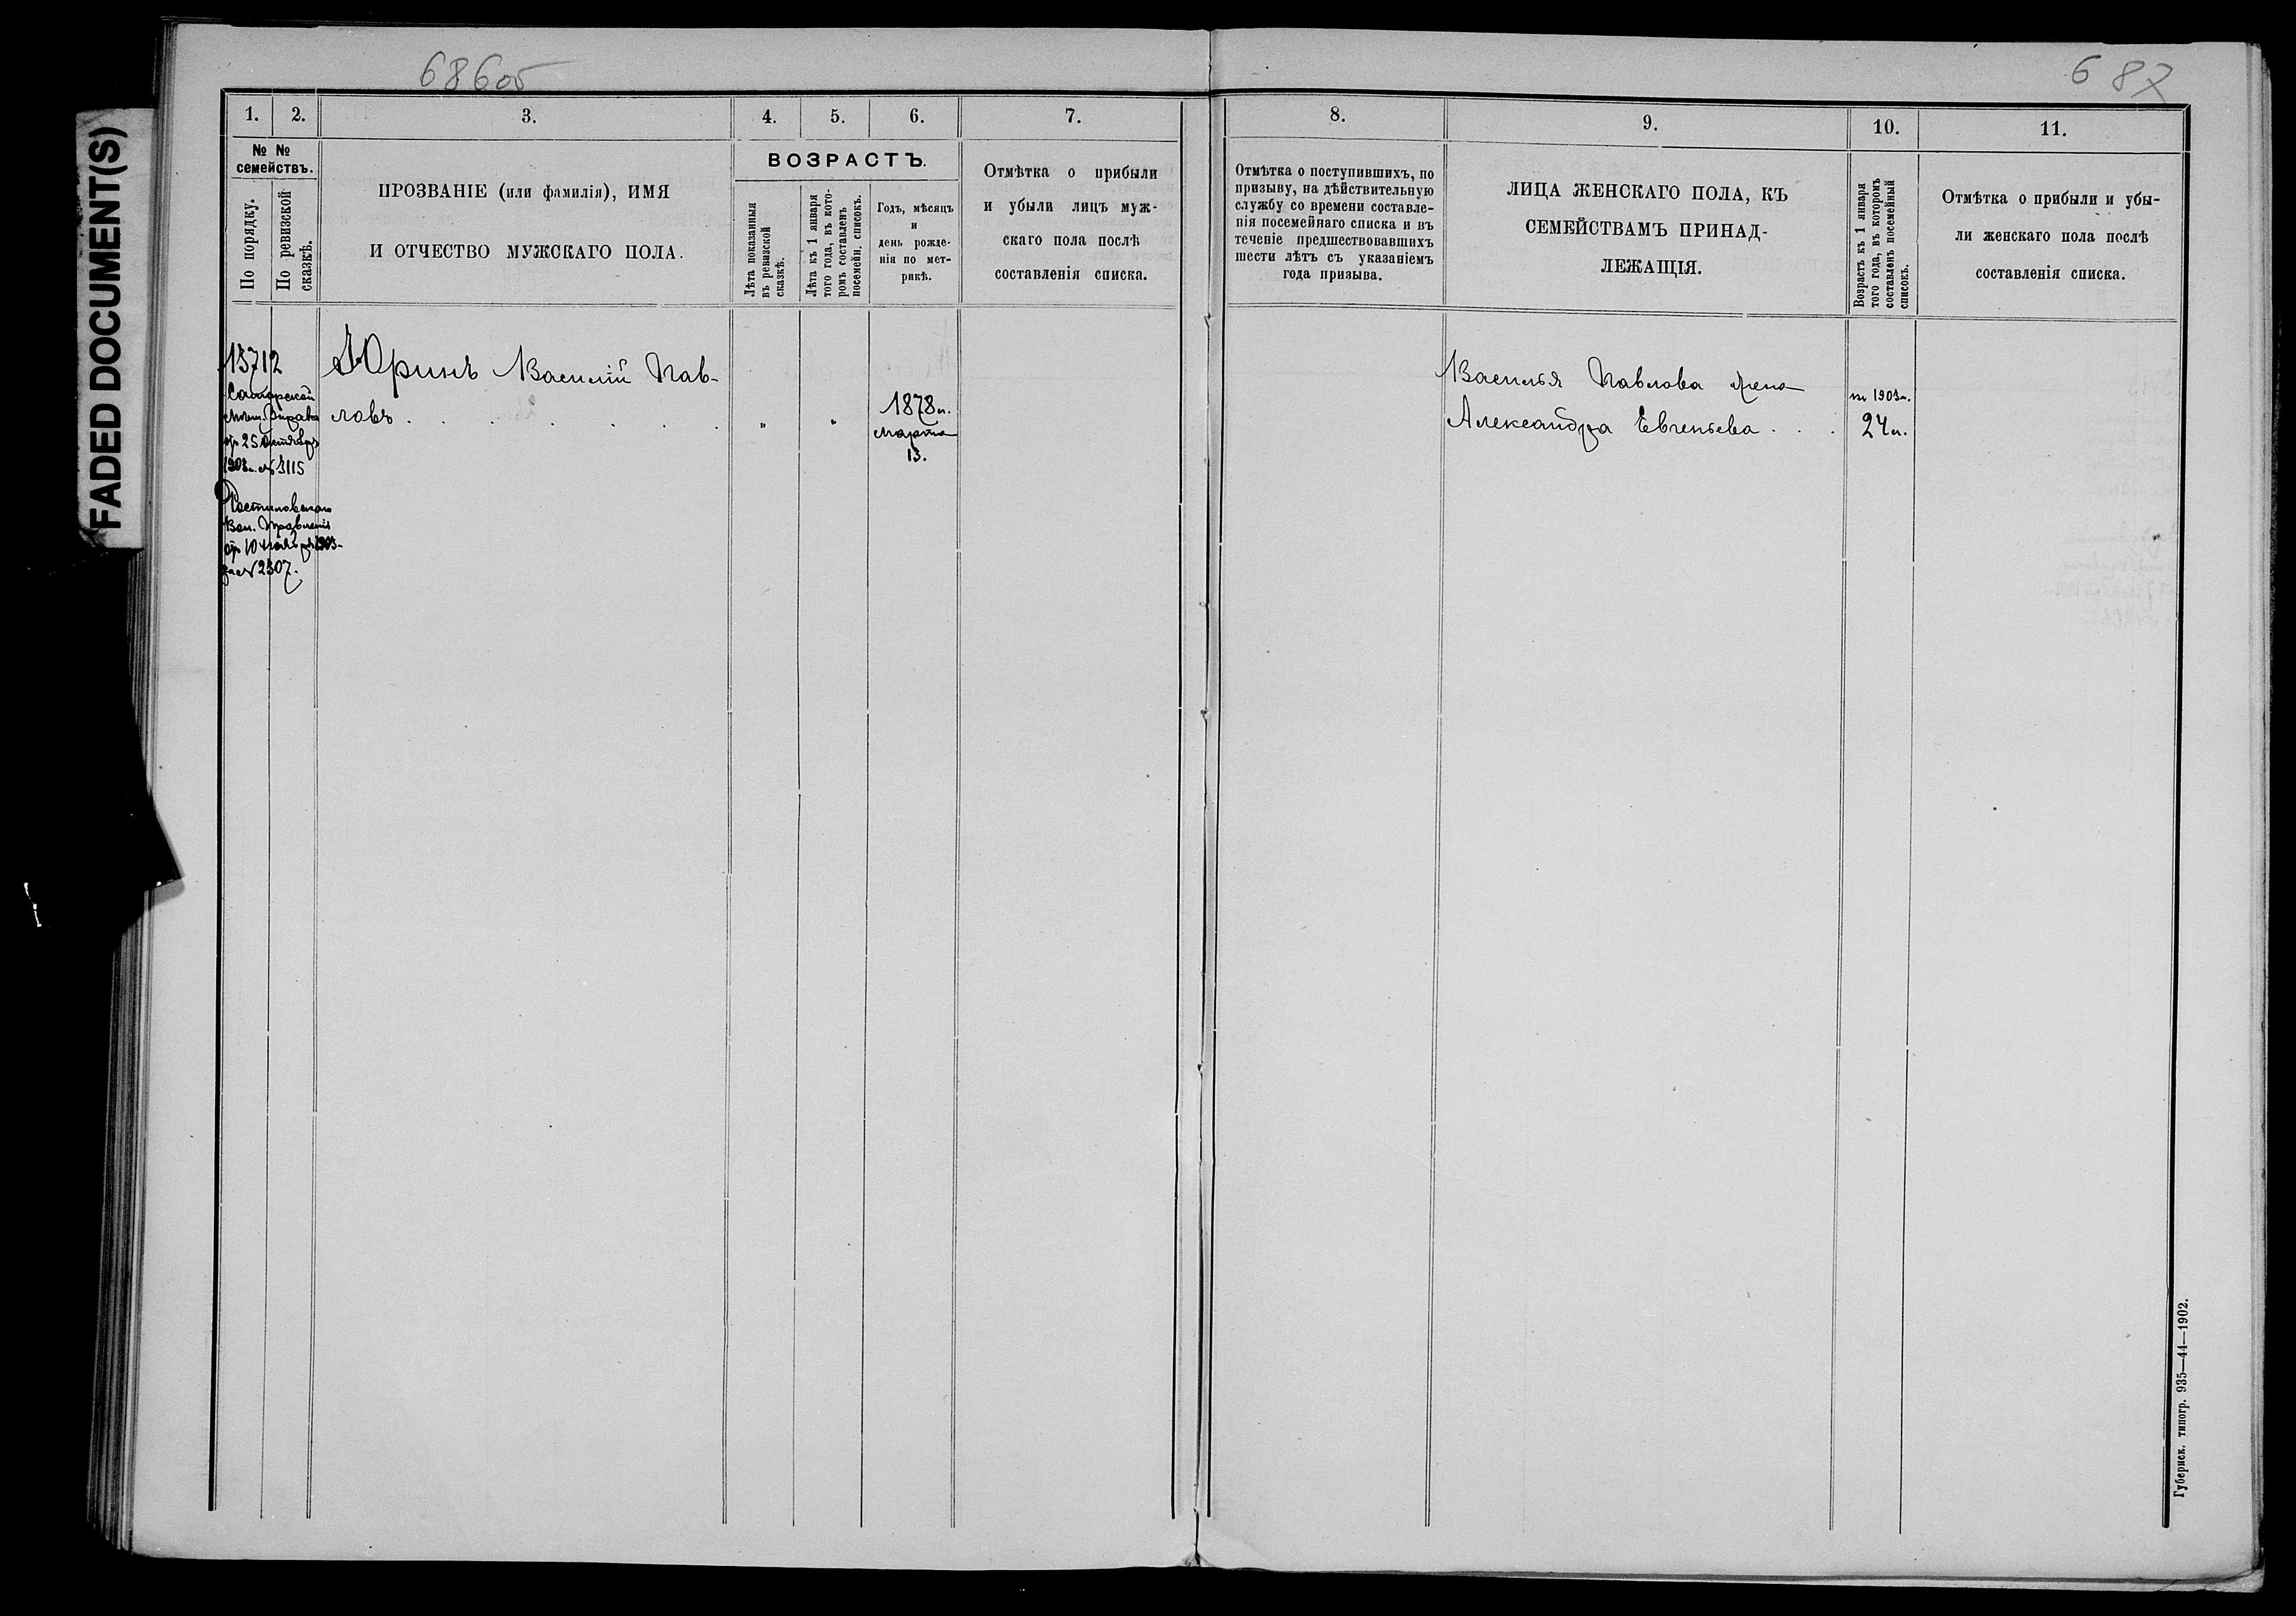 686об
687
FADED DOCUMENT(S)
1.
2.
3.
4.
5.
6.
7.
№ №
семействъ.
По порядку.
По ревизской
сказкѣ.
ПРОЗВАНІЕ (или фамилія), ИМЯ
И ОТЧЕСТВО МУЖСКАГО ПОЛА.
ВОЗРАСТЪ.
Лѣта показанныя
въ ревизской
сказкѣ.
Лѣта къ 1 января
того года, въ кото-
ромъ составленъ
посемейн. списокъ.
Годъ, мѣсяцъ
и
день рожде-
нія по мет-
рикѣ.
Отмѣтка о прибыли
и убыли лицъ муж-
скаго пола послѣ
составленія списка.
13712
Самарской
Мѣщ. Управы
отъ 25 Октября
1903 г. № 3115
Вол. Правленія
отъ 10 Ноября 1903
за № 2307.
Юринъ Василій Пав-
ловъ . . . . . . .
"
"
1878 г.
Марта
13.
8.
9.
10.
11.
Отмѣтка о поступившихъ, по
призыву, на дѣйствительную
службу со времени составле-
нія посемейнаго списка и въ
теченіе предшествовавшихъ
шести лѣтъ съ указаніемъ
года призыва.
ЛИЦА ЖЕНСКАГО ПОЛА, КЪ
СЕМЕЙСТВАМЪ ПРИНАД-
ЛЕЖАЩІЯ.
Возрастъ къ 1 января
того года, въ которомъ
составленъ посемейный
списокъ.
Отмѣтка о прибыли и убы-
ли женскаго пола послѣ
составленія списка.
Василья Павлова жена
Александра Евгеньева . . .
въ 1903 г.
24 л.
Губернск. типогр. 935—44—1902.